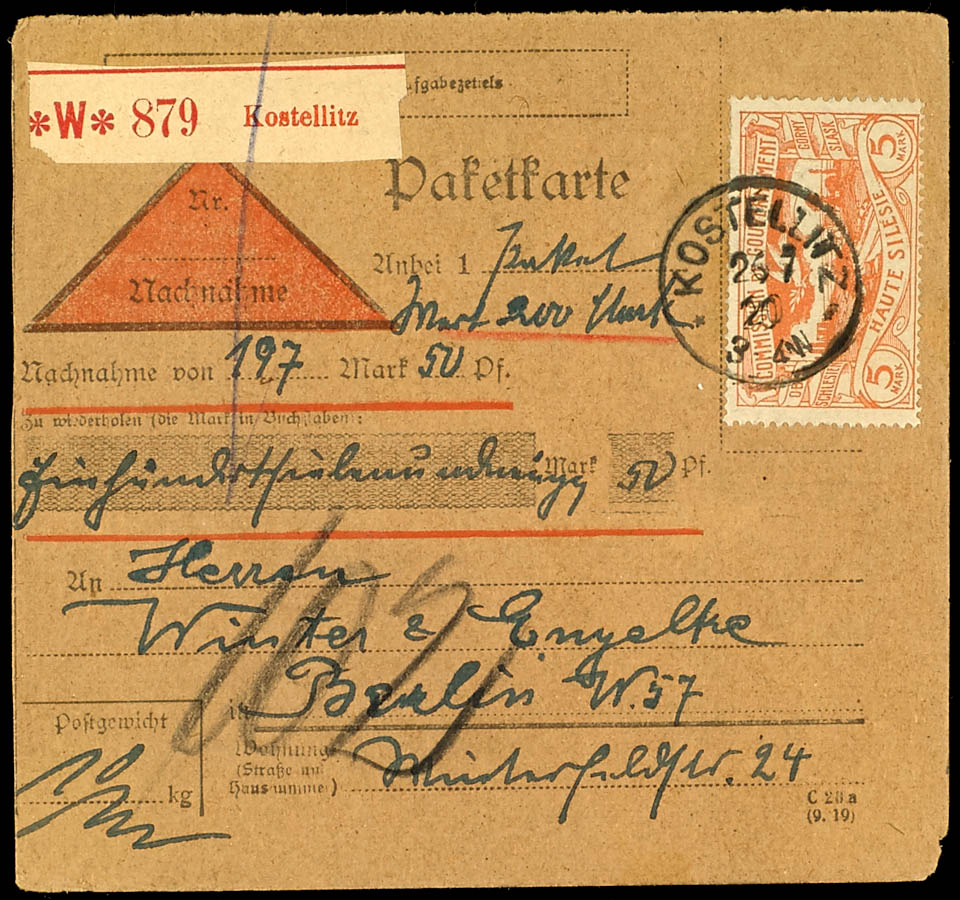 fgabezettels
*W* 879 Kostellitz
Paketkarte
Nr.
Nachnahme
Anbei 1 Paket
Wert 200 Mark
Nachnahme von 197 Mark 50 Pf.
Zu wiederholen (die Mark in Buchstaben):
Einhundertsiebenundneunzig Mark 50 Pf.
An Herren
Winter & Engelke
in Berlin W. 57
Postgewicht
kg
Wohnung
(Straße und
Hausnummer)
Winterfeldstr. 24
C 28 a
(9. 19)
5 MARK
GORNY SLASK
COMMISSION DE GOUVERNEMENT
HAUTE SILESIE
5 MARK
KOSTELLITZ
26 7
20